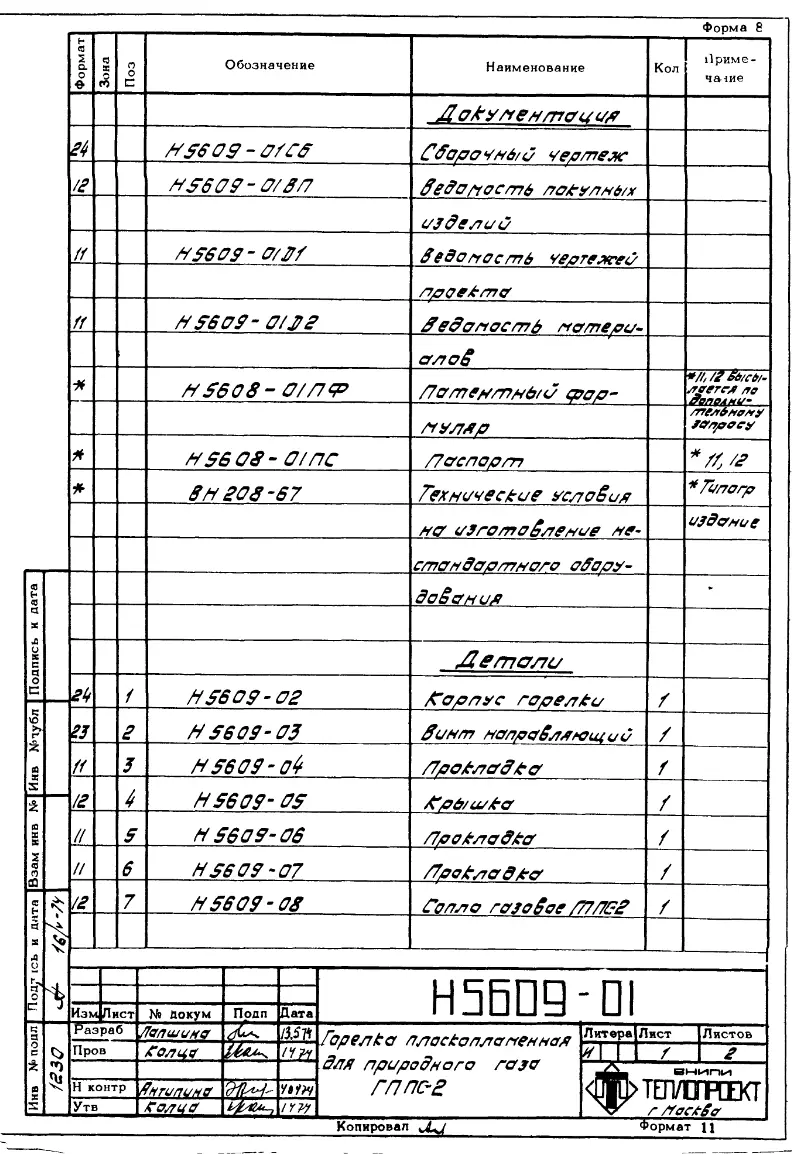 Форма 8
Формат Зона Поз Обозначение Наименование Кол Приме-
чание
Документация
24 Н5609-01СБ Сборочный чертеж
12 Н5609-01ВП Ведомость покупных
изделий
11 Н5609-01Д1 Ведомость чертежей
проекта
11 Н5609-01Д2 Ведомость матери-
алов
* Н5608-01ПФ Патентный фор- *11,12 Высы-
лается по
дополни-
муляр тельному
запросу
* Н5608-01ПС Паспорт * 11, 12
* ВН 208-67 Технические условия * Типогр
на изготовление не- издание
стандартного обору-
дования
Детали
24 1 Н5609-02 Корпус горелки 1
23 2 Н5609-03 Винт направляющий 1
11 3 Н5609-04 Прокладка 1
12 4 Н5609-05 Крышка 1
11 5 Н5609-06 Прокладка 1
11 6 Н5609-07 Прокладка 1
12 7 Н5609-08 Сопло газовое ГППС-2 1
Подпись и дата
Инв №дубл
Взам инв №
Подпись и дата 16/V-74
Инв № подл 1230
Н5609-01
Изм Лист № докум Подп Дата
Разраб Лапшина 13.5 74
Пров Колца
Н контр Антипина
Утв Колца
Горелка плоскопламенная
для природного газа
ГППС-2
Литера Лист Листов
И 1 2
ВНИПИ
ТЕПЛОПРОЕКТ
г Москва
Копировал Формат 11